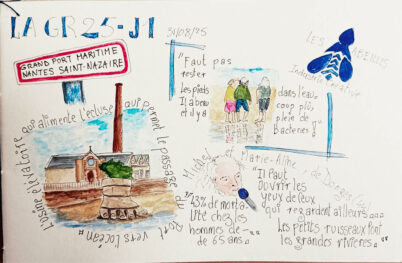 LA GR25-J1
31/08/25
GRAND PORT MARITIME
NANTES SAINT-NAZAIRE
L'usine élévatoire qui alimente l'écluse qui permet le passage du Port vers l'océan
"Faut pas
rester
les pieds
dans l'eau
coup plus
pleie de
Bacteries"
LES
Industrie créative
43% de morta-
lité chez les
hommes de -
de 65 ans
Marie-Aline, de Donges
"Il Faut
Ouvrir les
yeux de ceux
qui regardent ailleurs...
Les petits ruisseaux font
les grandes rivières"